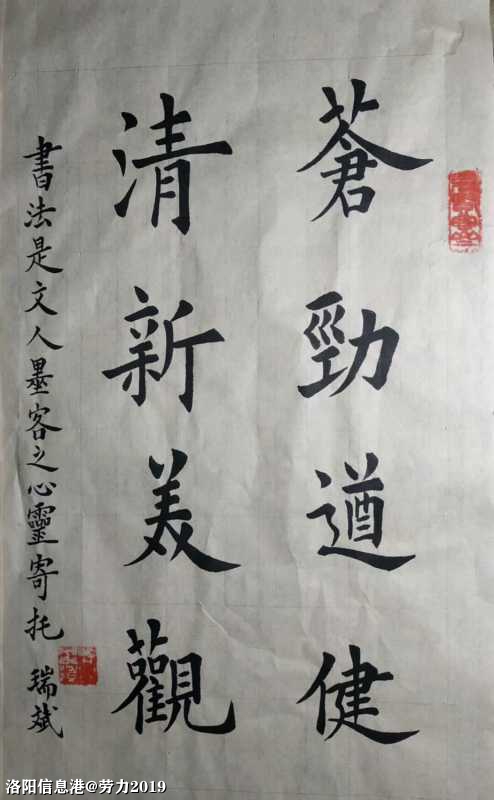 蒼勁遒健
清新美觀
書法是文人墨客之心靈寄托 瑞斌
洛阳信息港@劳力2019